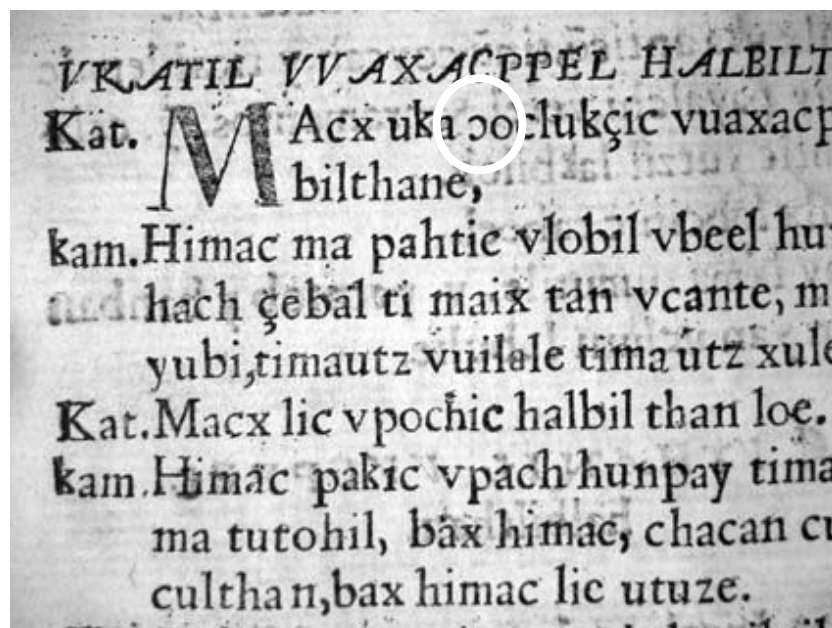 VKATIL VVAXACPPEL HALBILT
Kat. MAcx uka ɔoclukçic vuaxacp
bilthane,
kam. Himac ma pahtic vlobil vbeel hu
hach çebal ti maix tan vcante, m
yubi, timautz vuilale tima utz xule
Kat. Macx lic vpochic halbil than loe.
kam. Himac pakic vpach hunpay tima
ma tutohil, bax himac, chacan cu
culthan, bax himac lic utuze.